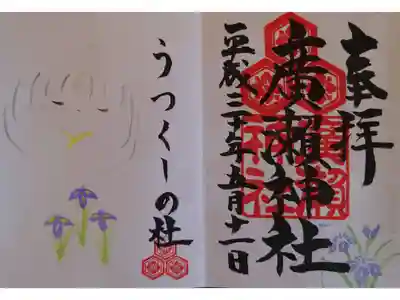 奉拝
廣瀬神社
平成三十年五月十一日
うつくしの杜